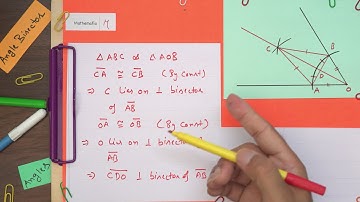 Angle Bisector
Mathematific
△ ABC & △ AOB
CA ≅ CB (By Const)
⇒ C lies on ⊥ bisector
of AB
OA ≅ OB (By Const)
⇒ O lies on ⊥ bisector
AB
⇒ CDO ⊥ bisector of AB
Angles
C
B
D
A
O